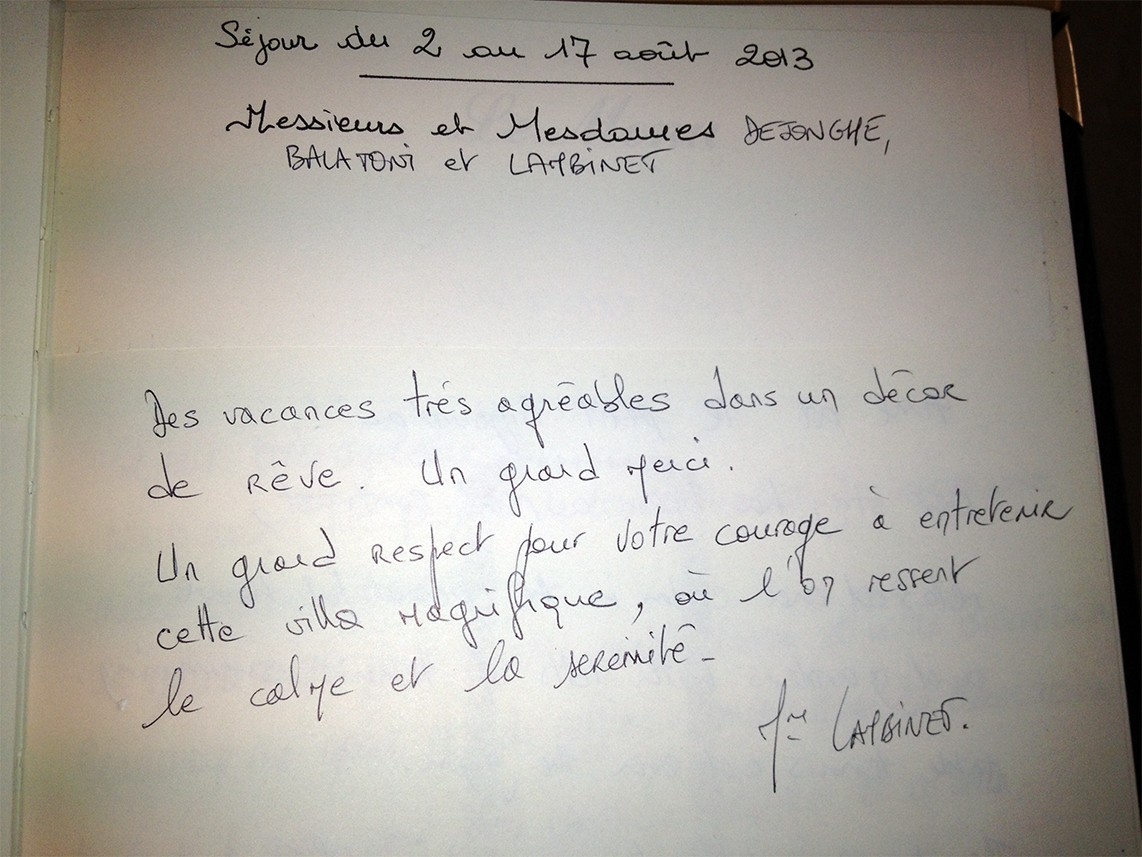 Séjour du 2 au 17 août 2013
Messieurs et Mesdames DEJONGHE,
BALATONI et LAMBINET
Des vacances trés agréables dans un décor
de rêve. Un grand merci.
Un grand respect pour votre courage à entretenir
cette villa magnifique, où l'on ressent
le calme et la serenité-
Mme LAMBINET.